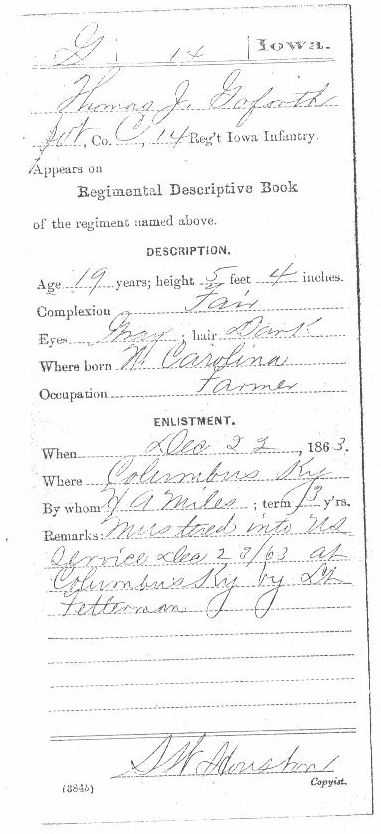 G | 14 | Iowa.
Thomas J. Goforth
Pvt, Co. C, 14 Reg't Iowa Infantry.
Appears on
Regimental Descriptive Book
of the regiment named above.
DESCRIPTION.
Age 19 years; height 5 feet 4 inches.
Complexion Fair
Eyes Gray; hair Dark
Where born N. Carolina
Occupation Farmer
ENLISTMENT.
When Dec 22, 1863.
Where Columbus Ky
By whom A Miles; term 3 y'rs.
Remarks: Mustered into US
Service Dec 23/63 at
Columbus Ky by Lt
Fetterman
S W Houston
(384b) Copyist.